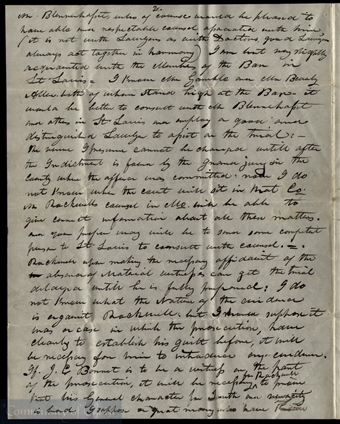 2.
Mr. Blennerhaft, who of course would be pleased to
have able and respectable counsel associated with him
(it is not with Lawyers as with Doctors for a Lawyer
always act together in harmony) I am but very slightly
acquainted with the Members of the Bar in
St Louis. I know Mr Gamble and Mr Beverly
Allen both of whom stand high at the Bar. it
would be better to consult with Mr Blennerhaft
and others in St Louis and employ a good and
distinguished Lawyer to assist in the trial: —
The venue I presume cannot be changed until after
the Indictment is found by the grand jury in the
County where the offence was committed. now I do
not know when the court will sit in that Co:
Mr counsel in Mo. will be able to
give correct information about all these matters.
and your proper way will be to send some competent
person to St Louis to consult with counsel. —
upon making the necessary affidavit of the
absence of Material witnesses can get the trial
delayed until he is fully prepared: I do
not know what the Nature of the evidence
is against but I should suppose it
was a case in which the prosecution, have
clearly to establish his guilt before, it will
be necessary for him to introduce any evidence.
If. J. C. Bonnet is to be a witness on the part
of the prosecution, it will be necessary to prove
that his General character for truth and veracity
is bad I suppose a great many will have